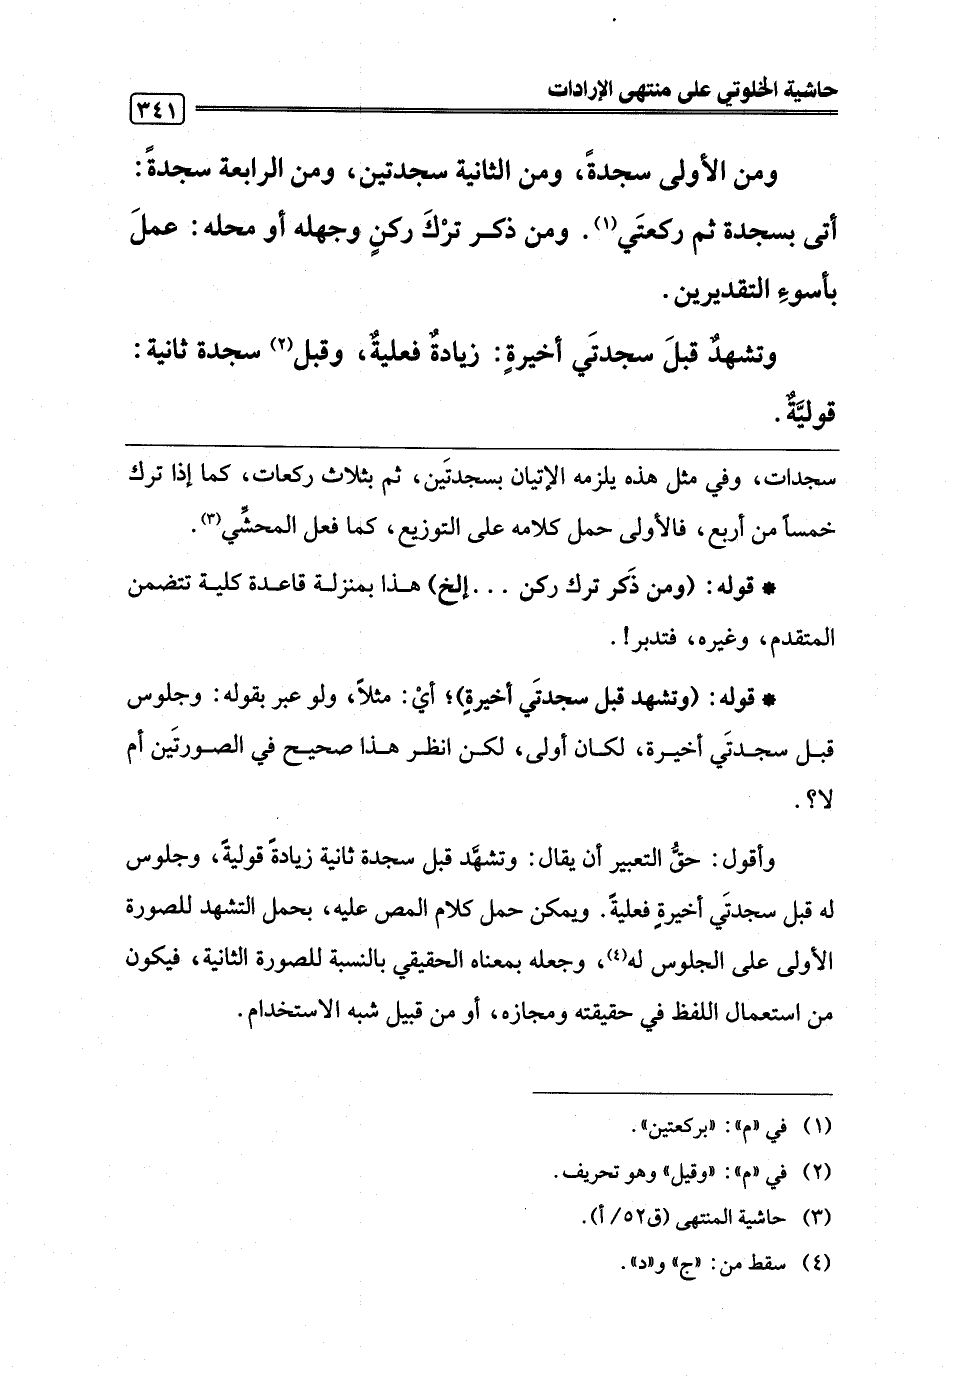 حاشية الخلوتي على منتهى الإرادات
٣٤١
ومن الأولى سجدةً، ومن الثانية سجدتين، ومن الرابعة سجدةً:
أتى بسجدة ثم ركعتَي(١). ومن ذكر ترْكَ ركنٍ وجهله أو محله: عملَ
بأسوءِ التقديرين.
وتشهدٌ قبلَ سجدتَي أخيرةٍ: زيادةٌ فعليةٌ، وقبل(٢) سجدة ثانية:
قوليَّةٌ.
سجدات، وفي مثل هذه يلزمه الإتيان بسجدتَين، ثم بثلاث ركعات، كما إذا ترك
خمساً من أربع، فالأولى حمل كلامه على التوزيع، كما فعل المحشِّي(٣).
* قوله: (ومن ذَكر ترك ركن ...إلخ) هذا بمنزلة قاعدة كلية تتضمن
المتقدم، وغيره، فتدبر!.
* قوله: (وتشهد قبل سجدتَي أخيرةٍ)؛ أيْ: مثلاً، ولو عبر بقوله: وجلوس
قبل سجدتَي أخيرة، لكان أولى، لكن انظر هذا صحيح في الصورتَين أم
لا؟.
وأقول: حقُّ التعبير أن يقال: وتشهَّد قبل سجدة ثانية زيادةً قوليةً، وجلوس
له قبل سجدتَي أخيرةٍ فعليةً. ويمكن حمل كلام المص عليه، بحمل التشهد للصورة
الأولى على الجلوس له(٤)، وجعله بمعناه الحقيقي بالنسبة للصورة الثانية، فيكون
من استعمال اللفظ في حقيقته ومجازه، أو من قبيل شبه الاستخدام.
(١) في «م»: «بركعتين».
(٢) في «م»: «وقيل» وهو تحريف.
(٣) حاشية المنتهى (ق٥٢/ أ).
(٤) سقط من: «ج» و«د».